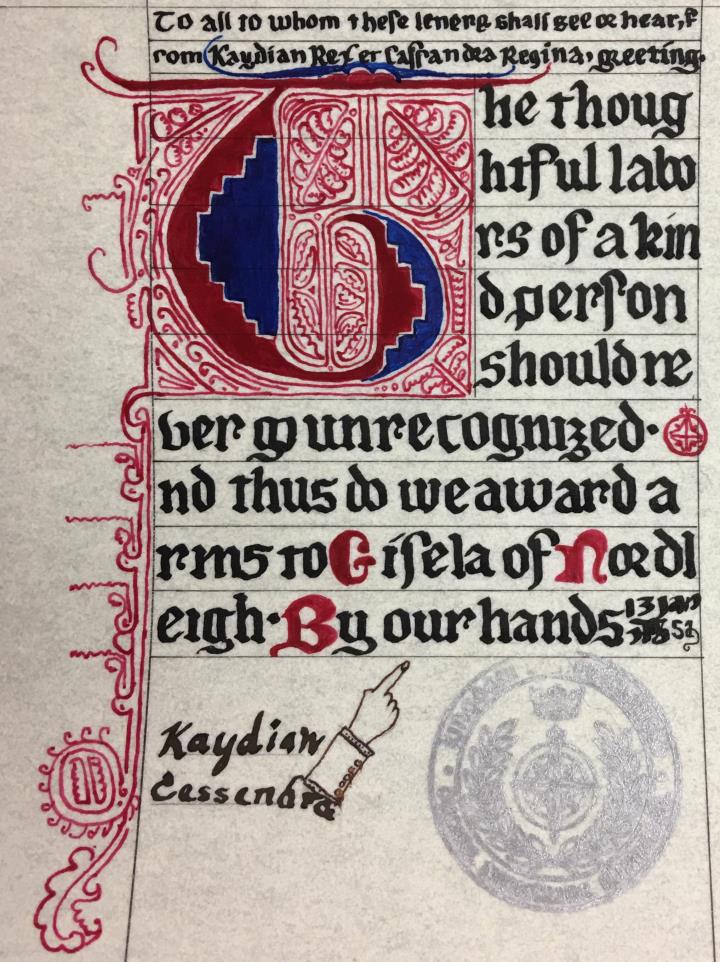 To all to whom these letters shall see or hear, f
rom Kaydian Rex et Cassandra Regina, greeting.
The thoug
htful labo
rs of a kin
d person
should ne
ver go unrecognized·
nd thus do we award a
rms to Gisela of Nordl
eigh· By our hands 13 Jan
AS 52
Kaydian
Cassandra